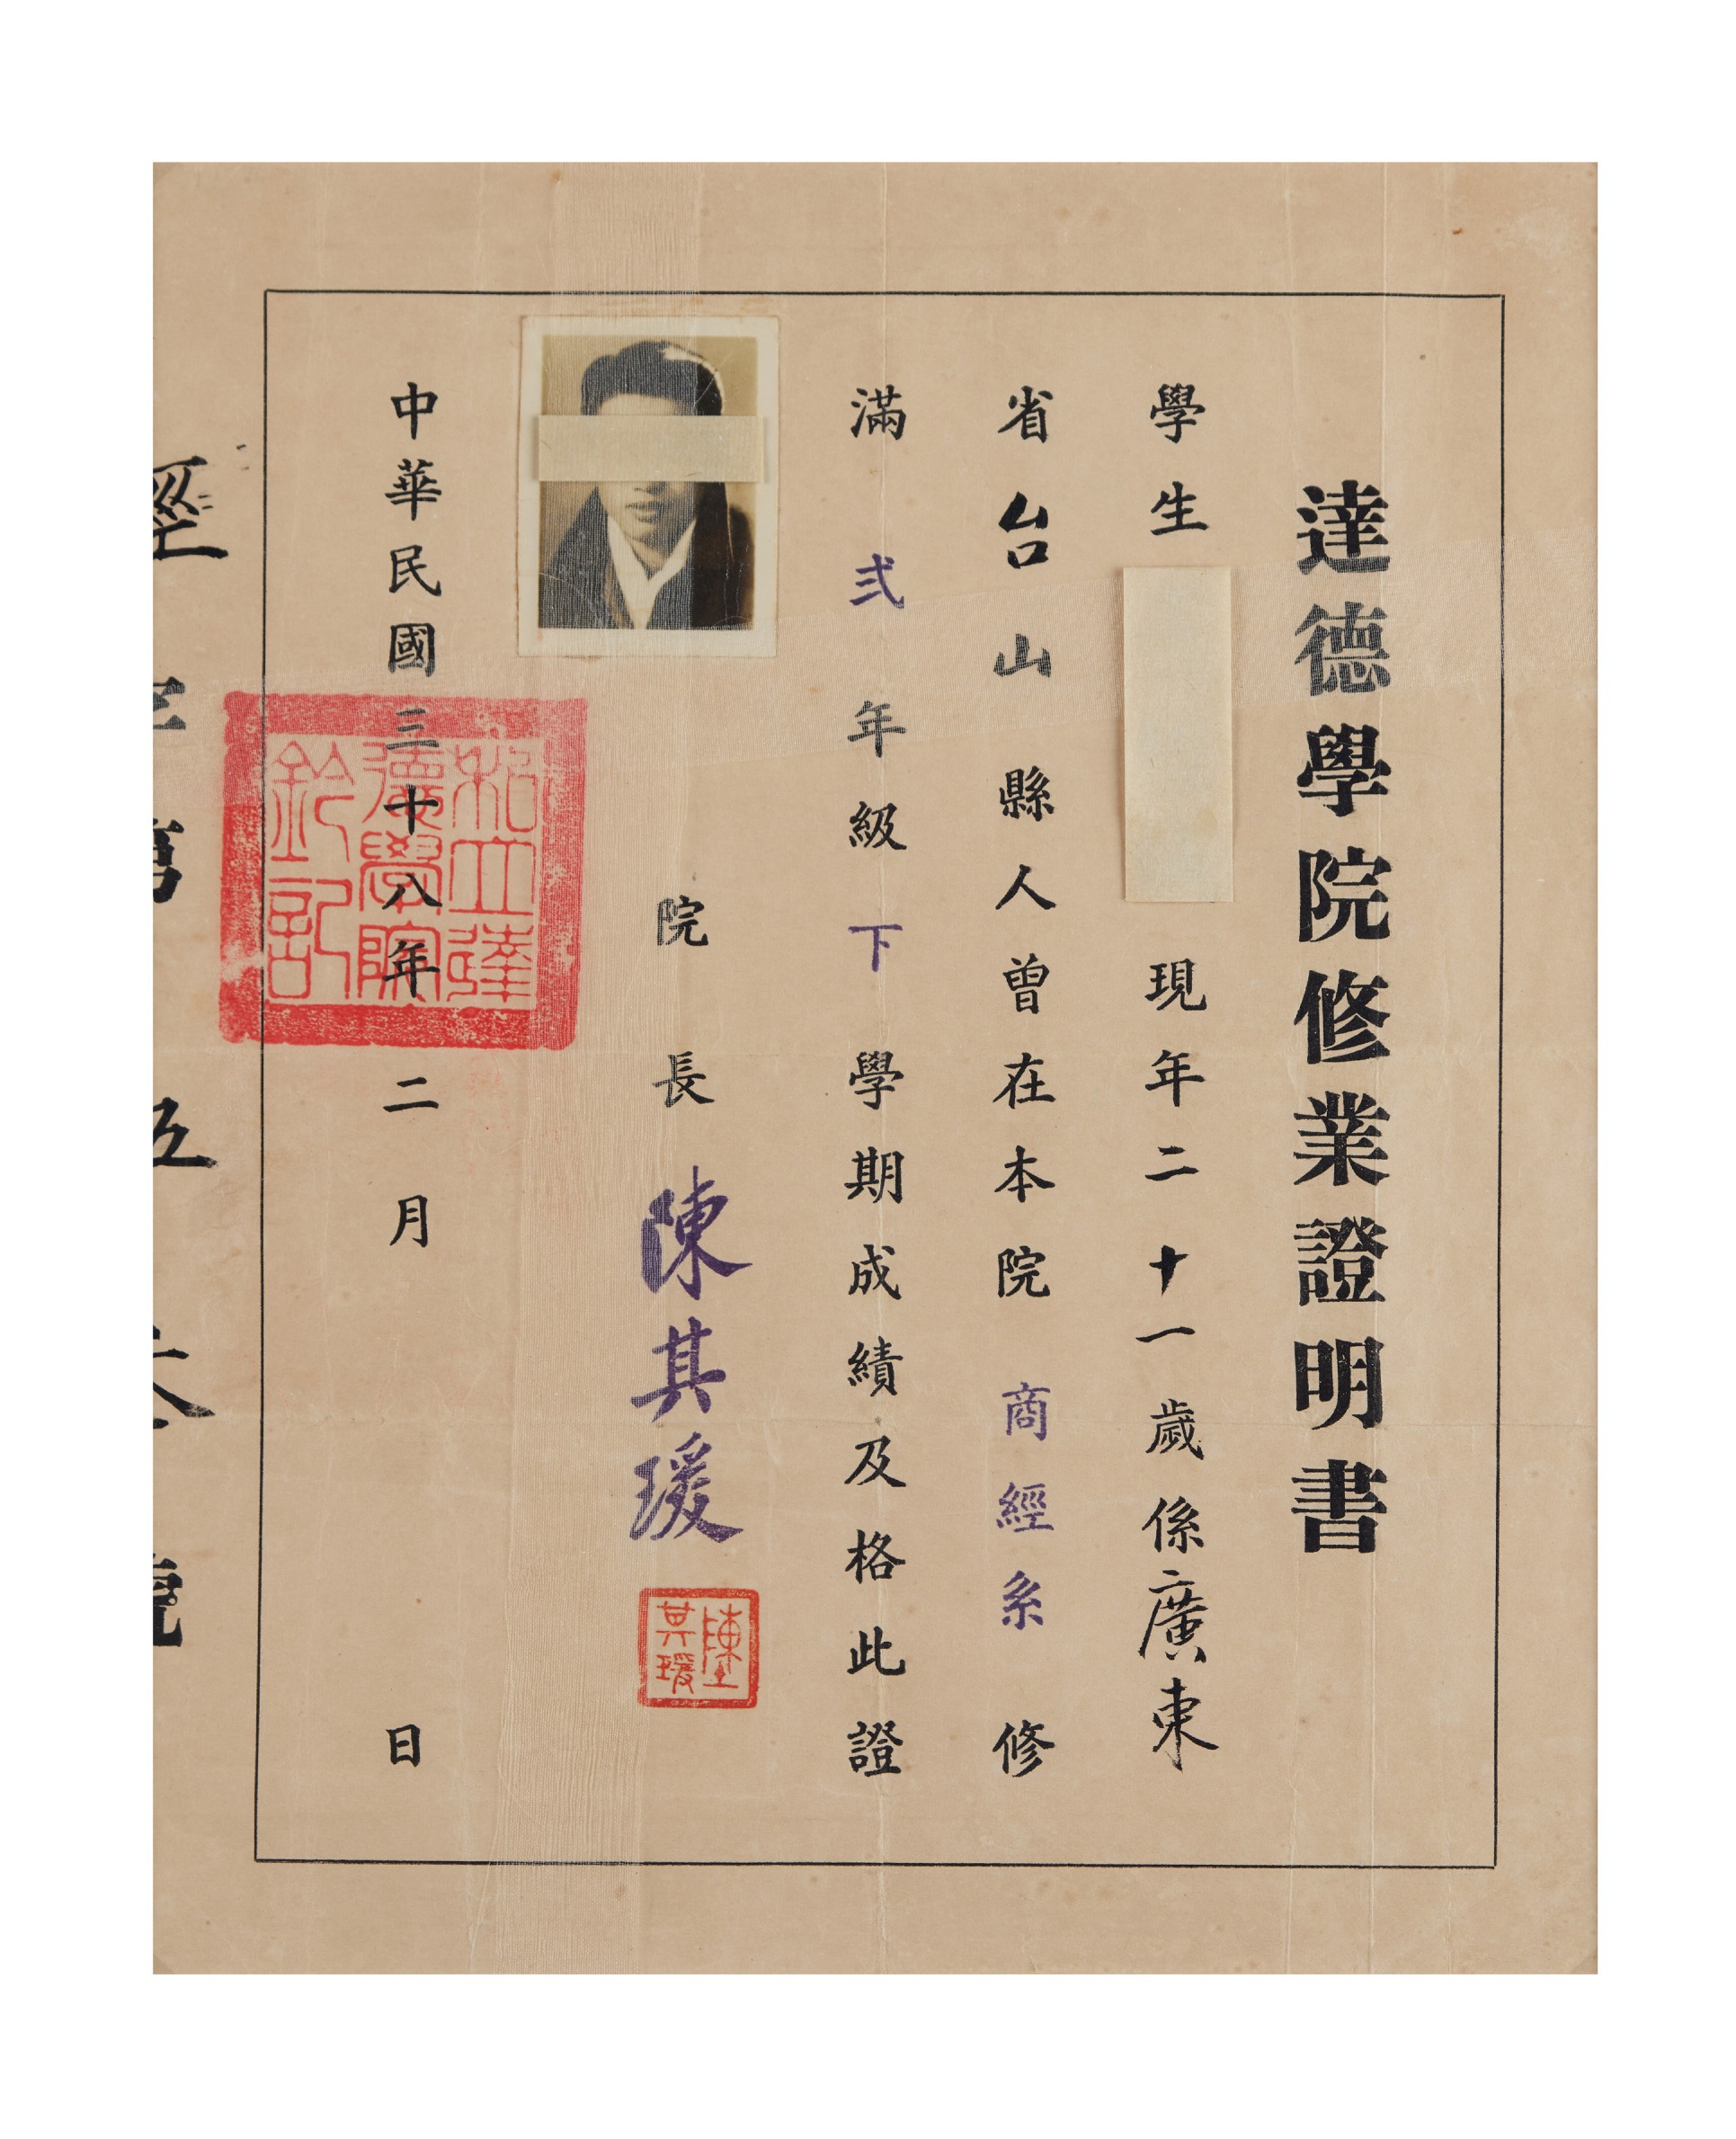 達德學院修業證明書
學生
現年二十一歲係廣東
省台山縣人曾在本院商經系修
滿弍年級下學期成績及格此證
院長陳其瑗
陳其瑗
中華民國三十八年二月日
私立達
德學院
鈐記
經字第伍叁號